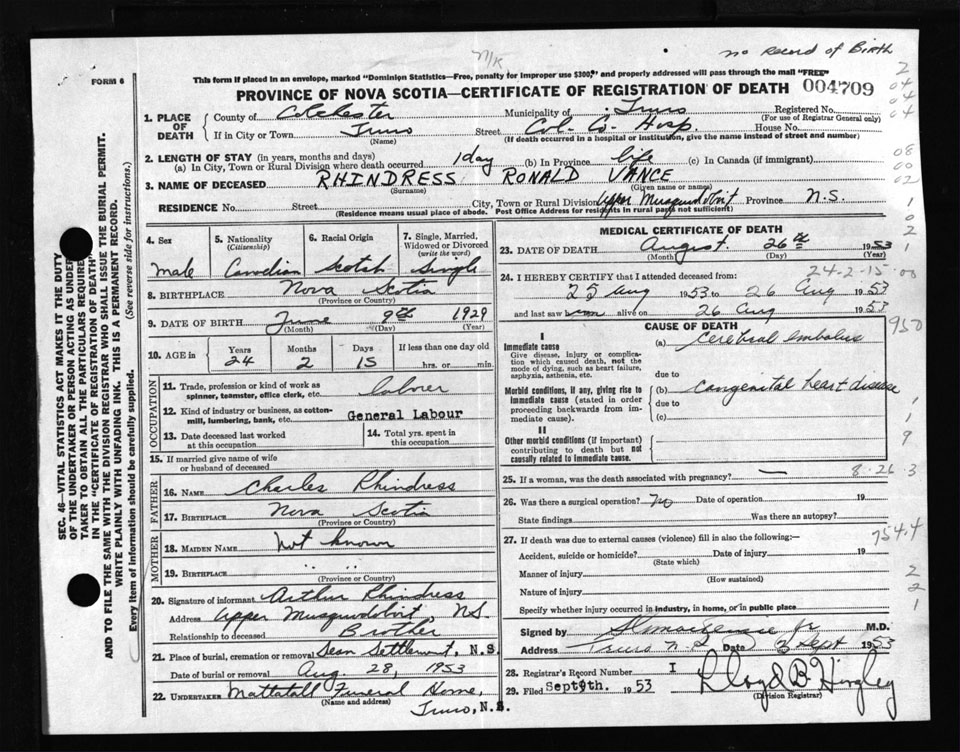 no Record of Birth
N/K
FORM 6
This form if placed in an envelope, marked "Dominion Statistics—Free, penalty for improper use $300," and properly addressed will pass through the mail "FREE"
PROVINCE OF NOVA SCOTIA—CERTIFICATE OF REGISTRATION OF DEATH 004709
1. PLACE OF DEATH
County of Colchester Municipality of Truro Registered No.
(For use of Registrar General only)
If in City or Town Truro Street Col. Co. Hosp. House No.
(Name) (If death occurred in a hospital or institution, give the name instead of street and number)
2. LENGTH OF STAY (in years, months and days)
(a) In City, Town or Rural Division where death occurred 1 day (b) In Province life (c) In Canada (if immigrant)
3. NAME OF DECEASED RHINDRESS RONALD VANCE
(Surname) (Given name or names)
RESIDENCE No. Street City, Town or Rural Division Upper Musquodobit Province N.S.
(Residence means usual place of abode. Post Office Address for residents in rural parts not sufficient)
4. Sex
male
5. Nationality
(Citizenship)
Canadian
6. Racial Origin
Scotch
7. Single, Married, Widowed or Divorced
(write the word)
Single
8. BIRTHPLACE Nova Scotia
(Province or Country)
9. DATE OF BIRTH June 9th 1929
(Month) (Day) (Year)
10. AGE in Years Months Days If less than one day old
24 2 15 hrs. or min.
OCCUPATION
11. Trade, profession or kind of work as spinner, teamster, office clerk, etc. labrer
12. Kind of industry or business, as cotton-mill, lumbering, bank, etc. General Labour
13. Date deceased last worked at this occupation
14. Total yrs. spent in this occupation
15. If married give name of wife or husband of deceased
FATHER
16. NAME Charles Rhindress
17. BIRTHPLACE Nova Scotia
(Province or Country)
MOTHER
18. MAIDEN NAME not known
19. BIRTHPLACE " "
(Province or Country)
20. Signature of informant Arthur Rhindress
Address Upper Musquodobit, N.S.
Relationship to deceased Brother
21. Place of burial, cremation or removal Dean Settlement, N.S.
Date of burial or removal Aug. 28, 1953
22. UNDERTAKER Mattatall Funeral Home,
(Name and address)
Truro, N.S.
MEDICAL CERTIFICATE OF DEATH
23. DATE OF DEATH August 26th 1953
(Month) (Day) (Year)
24-2-15-00
24. I HEREBY CERTIFY that I attended deceased from:
25 Aug 1953 to 26 Aug 1953
and last saw him alive on 26 Aug 1953
CAUSE OF DEATH
I
Immediate cause
Give disease, injury or complication which caused death, not the mode of dying, such as heart failure, asphyxia, asthenia, etc.
(a) Cerebral embolus
due to
Morbid conditions, if any, giving rise to immediate cause (stated in order proceeding backwards from immediate cause).
(b) Congenital heart disease
due to
(c)
II
Other morbid conditions (if important) contributing to death but not causally related to immediate cause.
25. If a woman, was the death associated with pregnancy? —
8-26-3
26. Was there a surgical operation? no Date of operation 19
State findings Was there an autopsy?
27. If death was due to external causes (violence) fill in also the following:— 754.4
Accident, suicide or homicide? Date of injury 19
(State which)
Manner of injury
(How sustained)
Nature of injury
Specify whether injury occurred in industry, in home, or in public place
Signed by M.D.
Address Truro N.S. Date 3 Sept 1953
28. Registrar's Record Number I
29. Filed Sept 9th. 1953 Lloyd B. Hingley
(Division Registrar)
SEC. 46—VITAL STATISTICS ACT MAKES IT THE DUTY
OF THE UNDERTAKER OR PERSON ACTING AS UNDER-
TAKER TO OBTAIN ALL THE PARTICULARS REQUIRED
IN THE "CERTIFICATE OF REGISTRATION OF DEATH"
AND TO FILE THE SAME WITH THE DIVISION REGISTRAR WHO SHALL ISSUE THE BURIAL PERMIT.
WRITE PLAINLY WITH UNFADING INK. THIS IS A PERMANENT RECORD.
Every item of information should be carefully supplied. (See reverse side for instructions.)
2
04
04
04
08
00
02
1
0
2
1
950
1
1
9
2
2
1